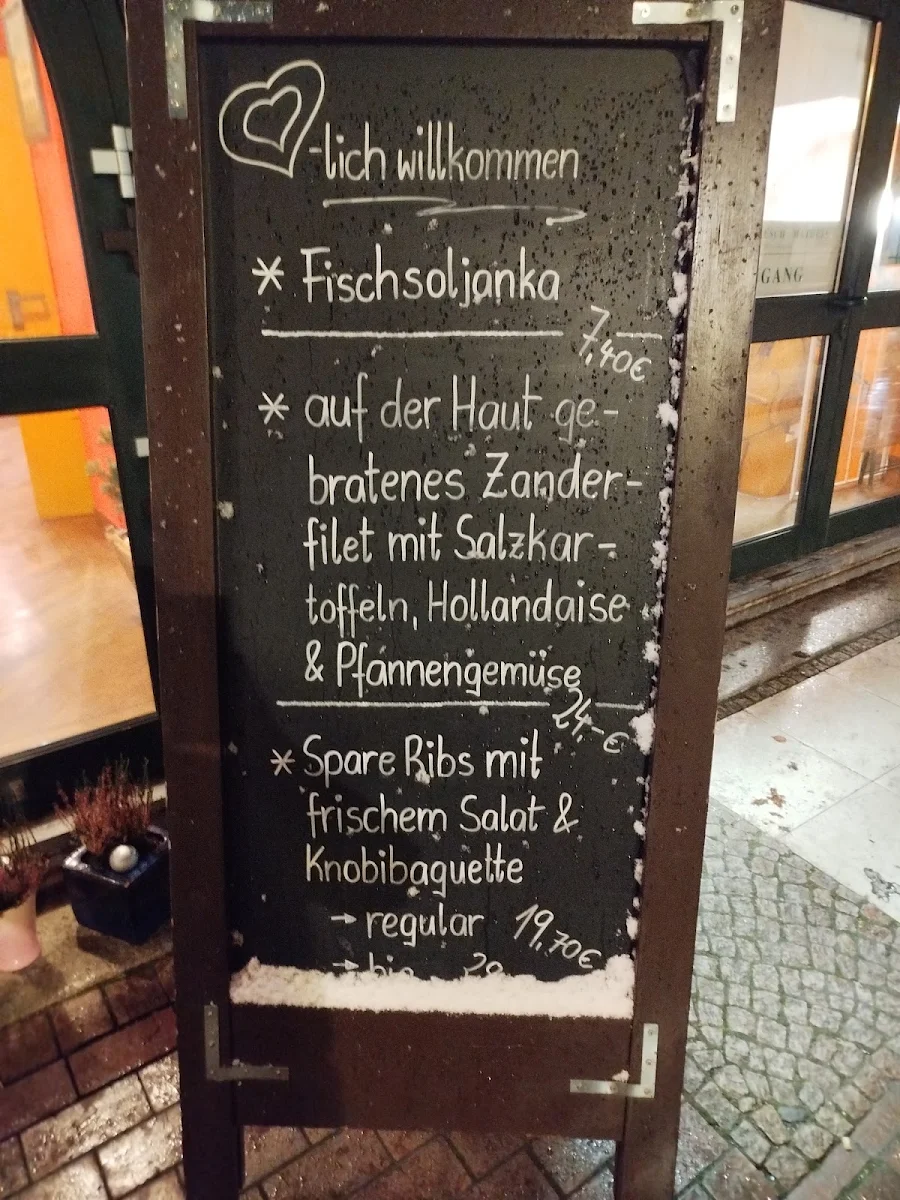 -lich willkommen
* Fischsoljanka
7,40€
* auf der Haut ge-
bratenes Zander-
filet mit Salzkar-
toffeln, Hollandaise
& Pfannengemüse
24,-€
* Spare Ribs mit
frischem Salat &
Knobibaguette
→ regular 19,70€
GANG